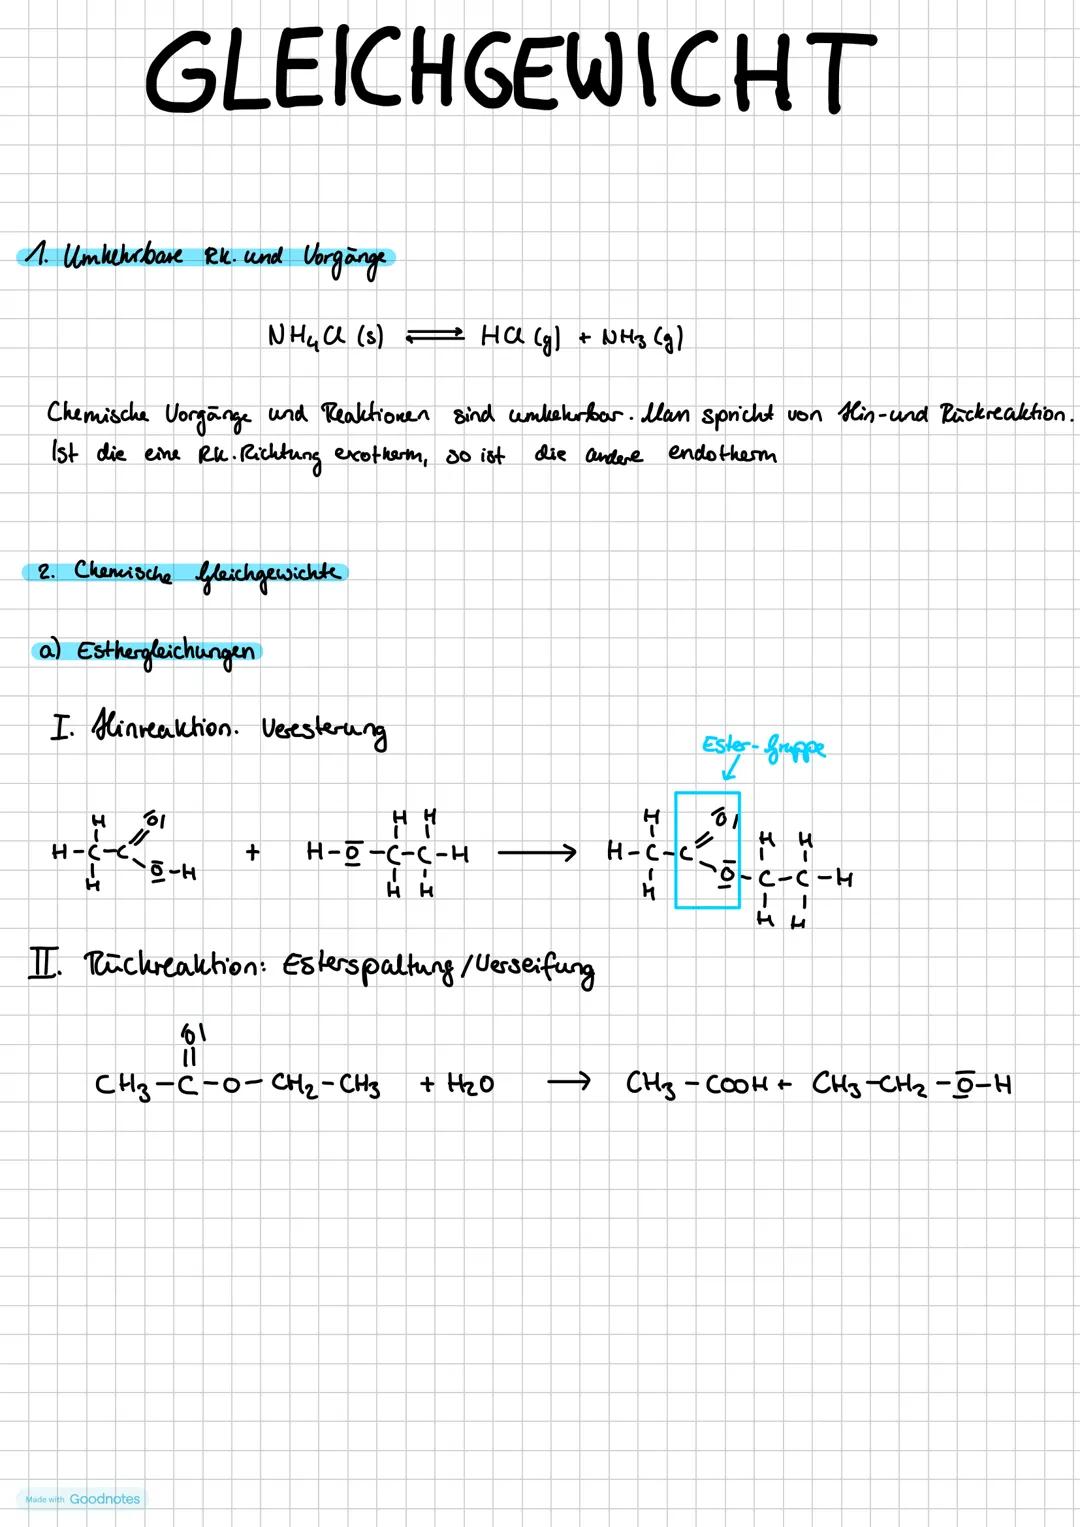 GLEICHGEWICHT
1. Umkehrbare Rk. und Vorgänge
NH4Cl (s) ⇌ HCl (g) + NH3 (g)
Chemische Vorgänge und Reaktionen sind umkehrbar. Man spricht von Hin-und Rückreaktion.
Ist die eine Rk. Richtung exotherm, so ist die andere endotherm
2. Chemische Gleichgewichte
a) Esthergleichungen
I. Hinreaktion. Veresterung
Ester-Gruppe
H H H H H H
O O
H-C-C + H-O-C-C-H → H-C-C
O-H O-C-C-H
H H H H H H
II. Rückreaktion: Esterspaltung/Verseifung
O
CH3-C-O-CH2-CH3 + H2O → CH3-COOH + CH3-CH2-O-H
Made with Goodnotes